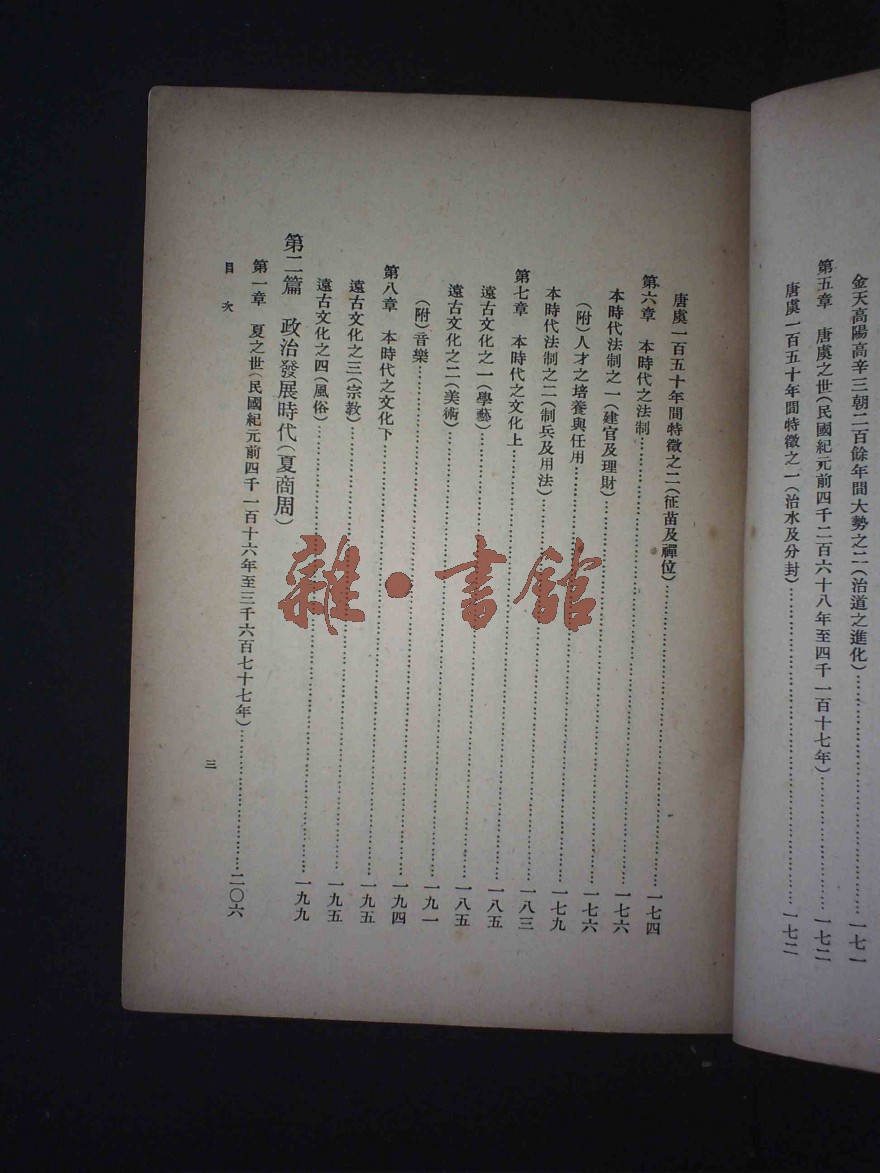 金天高陽高辛三朝二百餘年間大勢之二(治道之進化)……一七一
第五章 唐虞之世(民國紀元前四千二百六十八年至四千一百十七年)……一七二
唐虞一百五十年間特徵之一(治水及分封)……一七二
唐虞一百五十年間特徵之二(征苗及禪位)……一七四
第六章 本時代之法制……一七六
本時代法制之一(建官及理財)……一七六
(附)人才之培養與任用……一七九
本時代法制之二(制兵及用法)……一八三
第七章 本時代之文化上……一八五
遠古文化之一(學藝)……一八五
遠古文化之二(美術)……一九一
(附)音樂……一九四
第八章 本時代之文化下……一九五
遠古文化之三(宗教)……一九五
遠古文化之四(風俗)……一九九
第二篇 政治發展時代(夏商周)
第一章 夏之世(民國紀元前四千一百十六年至三千六百七十七年)……二〇六
目次
三
雜·書館